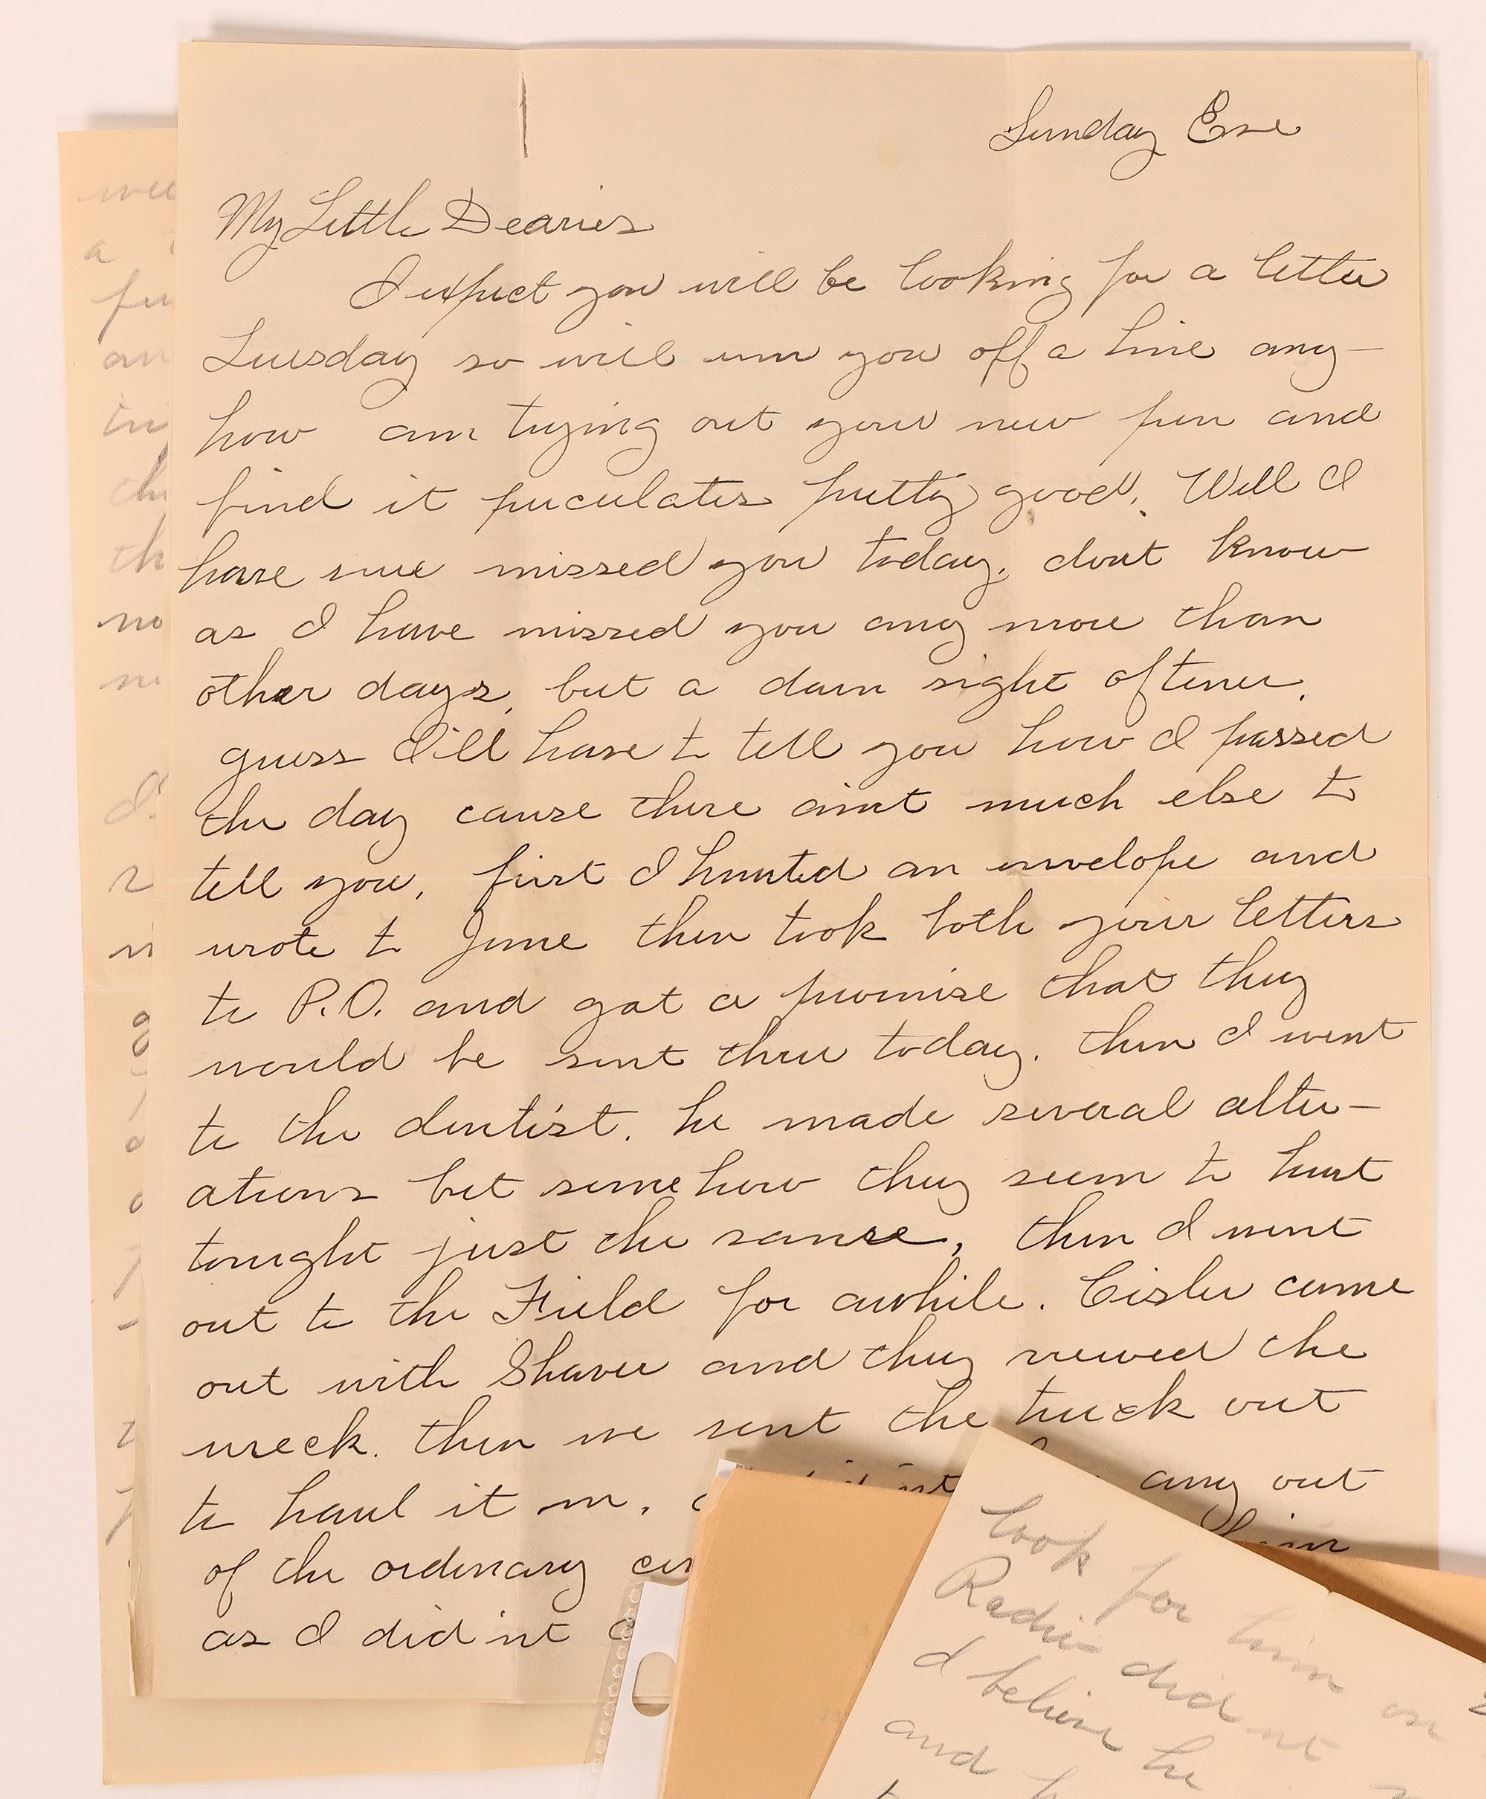 Sunday Eve
My Little Dearies
I expect you will be looking for a letter
Tuesday so will run you off a line any-
how am trying out your new pen and
find it perculates pretty good. Well I
have sure missed you today. dont know
as I have missed you any more than
other days, but a darn sight oftener.
guess I'll have to tell you how I passed
the day cause there aint much else to
tell you. first I hunted an envelope and
wrote to June then took both your letters
to P.O. and got a promise that they
would be sent thru today. then I went
to the dentist. he made several alter-
ations but somehow they seem to hurt
tonight just the same, then I went
out to the Field for awhile. Cisler came
out with Shaver and they viewed the
wreck. then we sent the truck out
to haul it in. any out
of the ordinary him
as I did'nt
look for him on
Radio did nt
I believe he
and